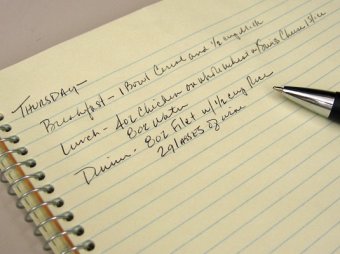 THURSDAY
Breakfast - 1 Bowl Cereal and 1/2 cup Milk
Lunch - 4oz Chicken on whole wheat w/ Swiss Cheese 1 slice
8oz Water
Dinner - 8oz Filet w/ 1 1/2 cup Rice
2 glasses of wine